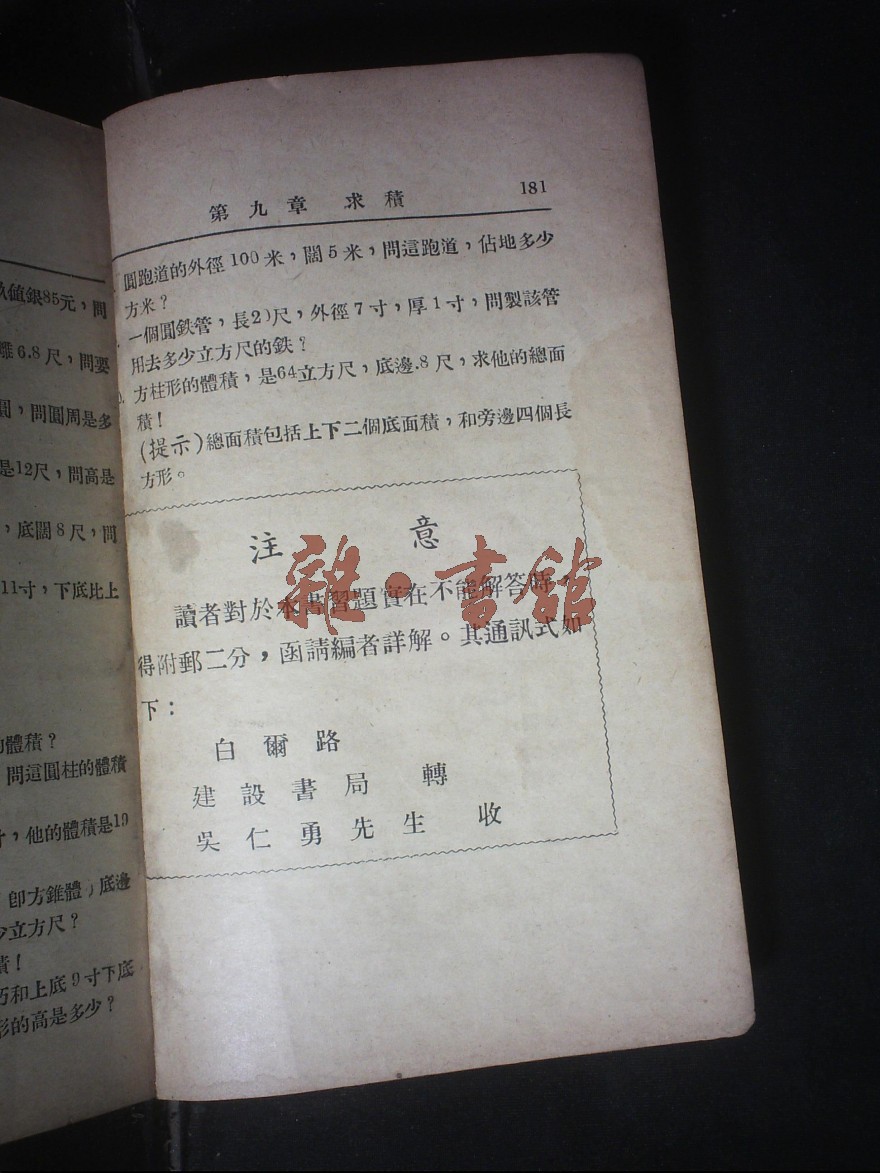 以值銀85元，問
離6.8尺，問要
圓，問圓周是多
是12尺，問高是
，底闊8尺，問
11寸，下底比上
的體積？
問這圓柱的體積
寸，他的體積是19
卽方錐體）底邊
少立方尺？
積！
巧和上底9寸下底
形的高是多少？
第九章 求積 181
圓跑道的外徑100米，闊5米，問這跑道，佔地多少
方米？
一個圓鉄管，長2)尺，外徑7寸，厚1寸，問製該管
用去多少立方尺的鉄？
0. 方柱形的體積，是64立方尺，底邊.8尺，求他的總面
積！
(提示)總面積包括上下二個底面積，和旁邊四個長
方形。
注 意
讀者對於本書習題實在不能解答時，
得附郵二分，函請編者詳解。其通訊式如
下：
白爾路
建設書局 轉
吳仁勇先生 收
雜·書館